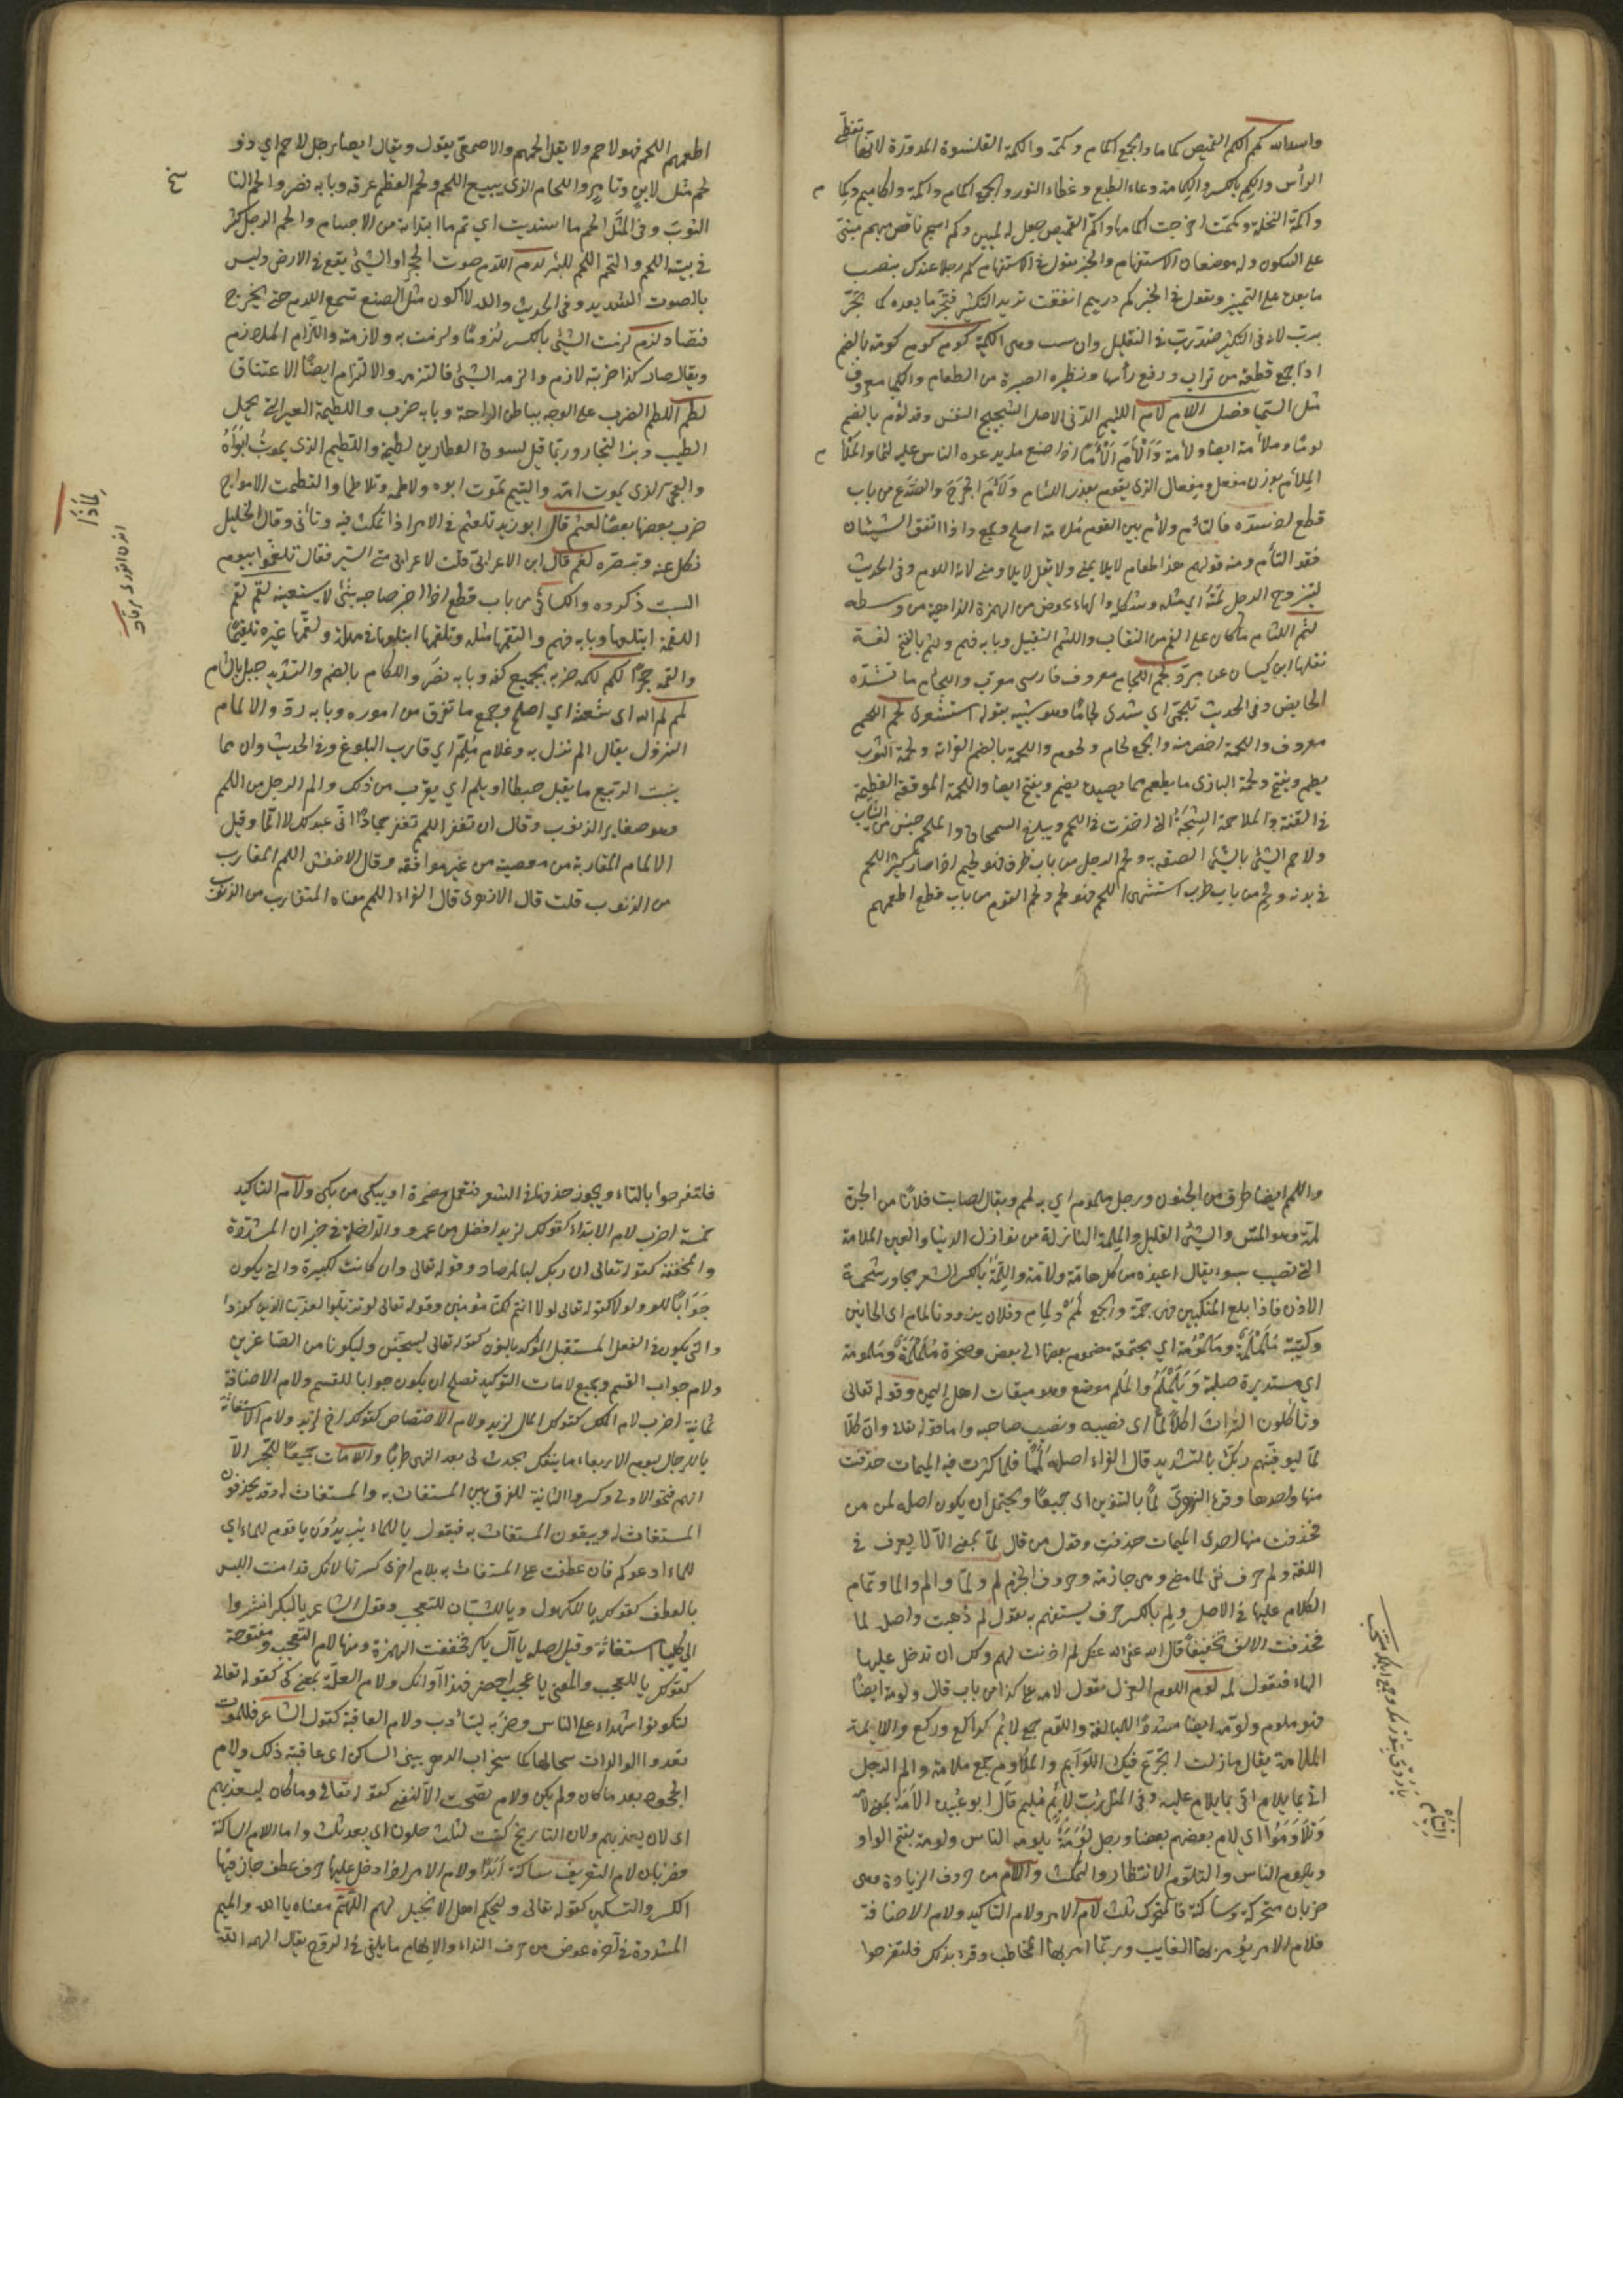 واسعات كمم الكم للقميص كماما والجمع اكمام وكممة والكمة القلنسوة المدورة لانها تغطي
الرأس والكم بالكسر والكمامة وعاء الطلع وغطاء النور والجمع اكمام واكمة
واكمت النخلة وكممت اخرجت اكمامها واكم القميص جعل له كمين وكم اسم ناقص مبهم مبني
على السكون وله موضعان الاستفهام والخبر تقول في الاستفهام كم رجلا عندك بنصب
ما بعده على التمييز وتقول في الخبر كم درهم انفقت تريد التكثير فتجر ما بعده كما تجر
برب لانه في التكثير ضد رب في التقليل وان كوم كوم كومة بالضم
اذا جمع قطعة من تراب ورفع رأسها ونظيره الصبرة من الطعام والكيمياء معروف
مثل السيميا فصل اللام لأم اللئيم الدني الاصل الشحيح النفس وقد لؤم بالضم
لؤما وملأمة ايضا ولأمة وألأم ألأما اذا صنع ما يدعوه الناس عليه لئيما والملأم
الملآم بوزن مفعل ومفعال الذي يقوم بعذر اللئام ولأم الجرح والصدع من باب
قطع اذا سده فالتأم ولأم بين القوم ملاءمة اصلح وجمع واذا اتفق الشيئان
فقد التأم ومنه قولهم هذا طعام لا يلايمني ولا تقل لا يلاومني لانه اللوم وفي الحديث
ليتزوج الرجل لمته اي مثله وشكله والهاء عوض من الهمزة الذاهبة من وسطه
لثم اللثام ما كان على الفم من النقاب واللثم التقبيل وبابه فهم ولثم بالفتح لغة
نقلها ابن كيسان عن المبرد لجم اللجام معروف فارسي معرب واللجام ما تشده
الحايض وفي الحديث تلجمي اي شدي لجاما وهو شبيه بقوله استثفري لحم اللحم
معروف واللحمة اخص منه والجمع لحام ولحوم واللحمة بالضم القرابة ولحمة الثوب
يضم ويفتح ولحمة البازي ما يطعم مما يصيده يضم ويفتح ايضا والملحمة الوقعة العظيمة
في الفتنة والمتلاحمة الشجة التي اخذت في اللحم ولم يبلغ السمحاق والملحم جنس من الثياب
ولاحم الشيء بالشيء الصقه به ولحم الرجل من باب ظرف فهو لحيم اذا صار كثير اللحم
في بدنه ولحم من باب طرب اشتهى اللحم فهو لحم ولحم القوم من باب قطع اطعمهم
اطعمهم اللحم فهو لاحم ولا يقل الحمهم والاصمعي يقول ويقال ايضا رجل لاحم اي ذو
لحم مثل لابن وتامر واللحام الذي يبيع اللحم ولحم العظم عرقه وبابه نصر والحم الناسج
الثوب وفي المثل الحم ما اسديت اي تم ما ابتدأته من الاحسان والحم الرجل كثر
في بيته اللحم والتحم الجرح للبرء لدم اللدم صوت الحجر او الشيء يقع في الارض وليس
بالصوت الشديد وفي الحديث والله لا اكون مثل الضبع تسمع اللدم حتى يخرج
فتصاد لزم لزمت الشيء بالكسر لزوما ولزمت به ولازمته واللزام الملازم
ويقال صار كذا ضربة لازم والزمه الشيء فالتزمه والالتزام ايضا الاعتناق
لطم اللطم الضرب على الوجه بباطن الراحة وبابه ضرب واللطيمة العير التي تحمل
الطيب وبز التجار وربما قيل لسوق العطارين لطيمة واللطيم الذي يموت ابواه
والعجي الذي يموت امه واليتيم يموت ابوه ولاطمه وتلاطما والتطمت الامواج
ضرب بعضها بعضا لعثم قال ابو زيد تلعثم في الامر اذا تمكث فيه وتأنى وقال الخليل
نكل عنه وتبصره لغم قال ابن الاعرابي قلت لاعرابي متى السير فقال تلغموا بيوم
السبت ذكروه والكسائي من باب قطع اذا اخبر صاحبه بشيء لا يستيقنه لقم لقم
اللقمة ابتلعها وبابه فهم والتقمها مثله وتلقمها ابتلعها في مهلة ولقمها غيره تلقيما
والقمه حجرا لكم لكمه ضربه بجميع كفه وبابه نصر واللكام بالضم والتشديد جبل بالشام
لمم لم الله شعثه اي اصلح وجمع ما تفرق من اموره وبابه رد والالمام
النزول يقال الم نزل به وغلام ملم اي قارب البلوغ وفي الحديث وان مما
ينبت الربيع ما يقتل حبطا او يلم اي يقرب من ذلك والم الرجل من اللمم
وهو صغاير الذنوب وقال ان تغفر اللهم تغفر جما واي عبد لك لا الما وقيل
الالمام المقاربة من معصية من غير مواقعة وقال الاخفش اللمم المقارب
من الذنوب قلت قال الازهري قال الفراء اللمم معناه المتقارب من الذنوب
واللمم ايضا طرف من الجنون ورجل ملموم اي به لمم ويقال اصابت فلانا من الجن
لمة وهو المس والشيء القليل والملمة النازلة من نوازل الدنيا والعين اللامة
التي تصيب بسوء يقال اعيذه من كل هامة ولامة واللمة بالكسر الشعر يجاوز شحمة
الاذن فاذا بلغ المنكبين فهي جمة والجمع لمم ولمام وفلان يزورنا لماما اي احايين
وكتيبة ململمة وملمومة اي مجتمعة مضموم بعضها الى بعض وصخرة ململمة وملمومة
اي مستديرة صلبة ويلملم والملم موضع وهو ميقات اهل اليمن وقوله تعالى
وتأكلون التراث اكلا لما اي نصيبه ونصيب صاحبه واما قوله تعالى وان كلا
لما ليوفينهم ربك بالتشديد قال الفراء اصله لمما فلما كثرت فيه الميمات حذفت
منها واحدها وقرء الزهري لما بالتنوين اي جميعا ويحتمل ان يكون اصله لمن من
فحذفت منها احدى الميمات حذفت وقول من قال لما بمعنى الا لا يعرف في
اللغة ولم حرف نفي لما مضى وهي جازمة وحروف الجزم لم ولما والم والما وتمام
الكلام عليها في الاصل ولم بالكسر حرف يستفهم به تقول لم ذهبت واصله لما
فحذفت الالف تخفيفا قال الله عفى الله عنك لم اذنت لهم ولك ان تدخل عليها
الهاء فتقول لمه لوم اللوم العذل تقول لامه على كذا من باب قال ولومة ايضا
فهو ملوم ولومه ايضا مشددا للمبالغة واللوم جمع لائم كراكع وركع واللايمة
الملامة يقال ما زلت اتجرع فيك اللوايم والملاوم جمع ملامة والام الرجل
اتى بما يلام عليه وفي المثل رب لائم مليم قال ابو عبيدة الامه بمعنى لامه
وتلاوموا اي لام بعضهم بعضا ورجل لومة يلومه الناس ولومة بفتح الواو
يلوم الناس والتلوم الانتظار والتمكث واللام من حروف الزيادة وهي
ضربان متحركة وساكنة فالمتحرك ثلث لام الامر ولام التاكيد ولام الاضافة
فلام الامر يؤمر بها الغايب وربما امر بها المخاطب وقرء بذلك فلتفرحوا
التأم
فلتفرحوا بالتاء ويجوز حذفها في الشعر فتعمل مضمرة او يبكي من بكى ولام التاكيد
خمسة اضرب لام الابتداء كقولك لزيد افضل من عمرو والداخلة في خبر ان المشددة
والمخففة كقوله تعالى ان ربك لبالمرصاد وقوله تعالى وان كانت لكبيرة والتي يكون
جوابا للو ولولا كقوله تعالى لولا انتم لكنا مؤمنين وقوله تعالى لو تزيلوا لعذبنا الذين كفروا
والتي يكون في الفعل المستقبل المؤكد بالنون كقوله تعالى ليسجنن وليكونا من الصاغرين
ولام جواب القسم وجميع لامات التوكيد تصلح ان يكون جوابا للقسم ولام الاضافة
ثمانية اضرب لام الملك كقولك المال لزيد ولام الاختصاص كقولك اخ لزيد ولام الاستغاثة
يا للرجال ليوم الاربعاء ما ينفك يحدث لي بعد النهى طربا واللامات جميعا للجر الا
انهم فتحوا الاولى وكسروا الثانية للفرق بين المستغاث به والمستغاث له وقد يحذفون
المستغاث له ويبقون المستغاث به فيقول يا للماء يريدون يا قوم للماء اي
للماء ادعوكم فان عطفت على المستغاث به بلام اخرى كسرتها لانك قد امنت اللبس
بالعطف كقولك يا للكهول ويا للشبان للتعجب وقول الشاعر يا لبكر انشروا
لي كليبا استغاثة وقيل اصله يا آل بكر فخففت الهمزة ومنها لام التعجب مفتوحة
كقولك يا للعجب والمعنى يا عجب احضر فهذا اوانك ولام العلة بمعنى كي كقوله تعالى
لتكونوا شهداء على الناس وضربه ليتأدب ولام العاقبة كقول الشاعر فللموت
تغدوا الوالدات سخالها كما لخراب الدهر يبنى المساكن اي عاقبة ذلك ولام
الجحود بعد ما كان ولم يكن ولام تصحب الا النفي كقوله تعالى وما كان ليعذبهم
اي لان يعذبهم ولام التاريخ كتبت لثلث خلون اي بعد ثلث واما اللام الساكنة
فضربان لام التعريف ساكنة ابدا ولام الامر اذا دخل عليها حرف عطف جاز فيها
الكسر والتسكين كقوله تعالى وليحكم اهل الانجيل لهم اللهم معناه يا الله والميم
المشددة في آخره عوض من حرف النداء والالهام ما يلقى في الروع يقال الهمه الله